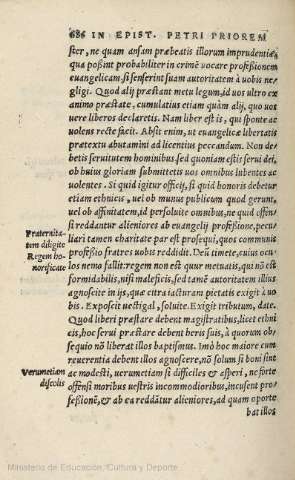 686 IN EPIST. PETRI PRIOREM
ster, ne quam ansam præbeatis illorum imprudentiæ,
qua possint probabiliter in crimē vocare professionem
euangelicam. si senserint suam autoritatem à uobis ne-
gligi. Quod alij præstant metu legum, id uos ultro ex
animo præstate, cumulatius etiam quàm alij, quo uos
uere liberos declaretis. Nam liber est is, qui sponte ac
uolens recte facit. Absit enim, ut euangelicæ libertatis
prætextu abutamini ad licentius peccandum. Non de-
betis seruitutem hominibus, sed quoniam estis serui dei,
ob huius gloriam submittetis uos omnibus lubentes ac
uolentes. Si quid igitur officij, si quid honoris debetur
etiam ethnicis, uel ob munus publicum quod gerunt,
uel ob affinitatem, id persoluite omnibus, ne quid offen-
si reddantur alieniores ab euangelij professione, pecu-
Fraternita-
liari tamen charitate par est prosequi, quos communis
tem diligite
professio fratres uobis reddidit. Deū timete, cuius ocu-
Regem ho-
los nemo fallit: regem non est quur metuatis, qui nō est
norificate
formidabilis, nisi maleficis, sed tamē autoritatem illius
agnoscite in ijs, quæ citra iacturam pietatis exigit à uo
bis. Exposcit uectigal, soluite. Exigit tributum, date.
Quod liberi præstare debent magistratibus, licet ethni
cis, hoc serui præstare debent heris suis, à quorum ob-
sequio nō liberat illos baptismus. Imò hoc maiore cum
reuerentia debent illos agnoscere, nō solum si boni sint
Verumetiam
ac modesti, uerumetiam si difficiles & asperi, ne forte
discolis
offensi moribus uestris incommodioribus, incusent pro-
fessionē, & ab ea reddātur alieniores, ad quam oporte
bat illos
Ministerio de Educación, Cultura y Deporte